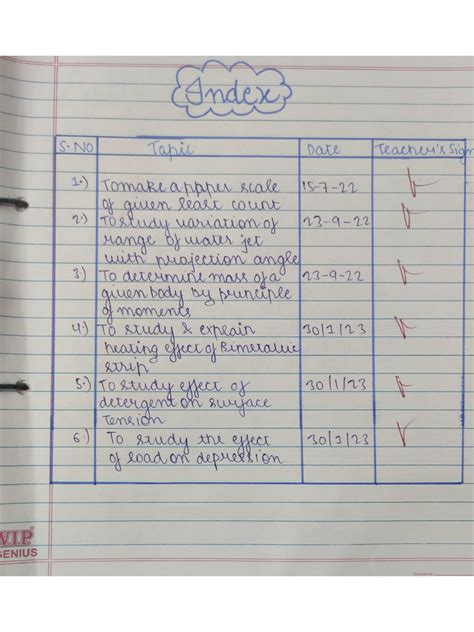 Index
S.NO Topic Date Teacher's Sign
1.) To make a papper scale 15-7-22
of given least count
2.) To study variation of 23-9-22
range of water jet
with projection angle
3) To determine mass of a 23-9-22
given body by principle
of moments
4.) To study & explain 30/1/23
heating effect of Bimetallic
strip
5.) To study effect of 30/1/23
detergent on surface
tension
6.) To study the effect 30/1/23
of load on depression
V.I.P.
GENIUS